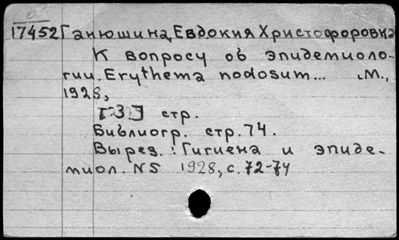 17452 Ганюшина, Евдокия Христофоровна
К вопросу об эпидемиоло-
гии. Erythema nodosum... М.,
1928,
[3] стр.
Библиогр. стр. 74.
Вырез.: Гигиена и эпиде-
миол. N5 1928, с. 72-74